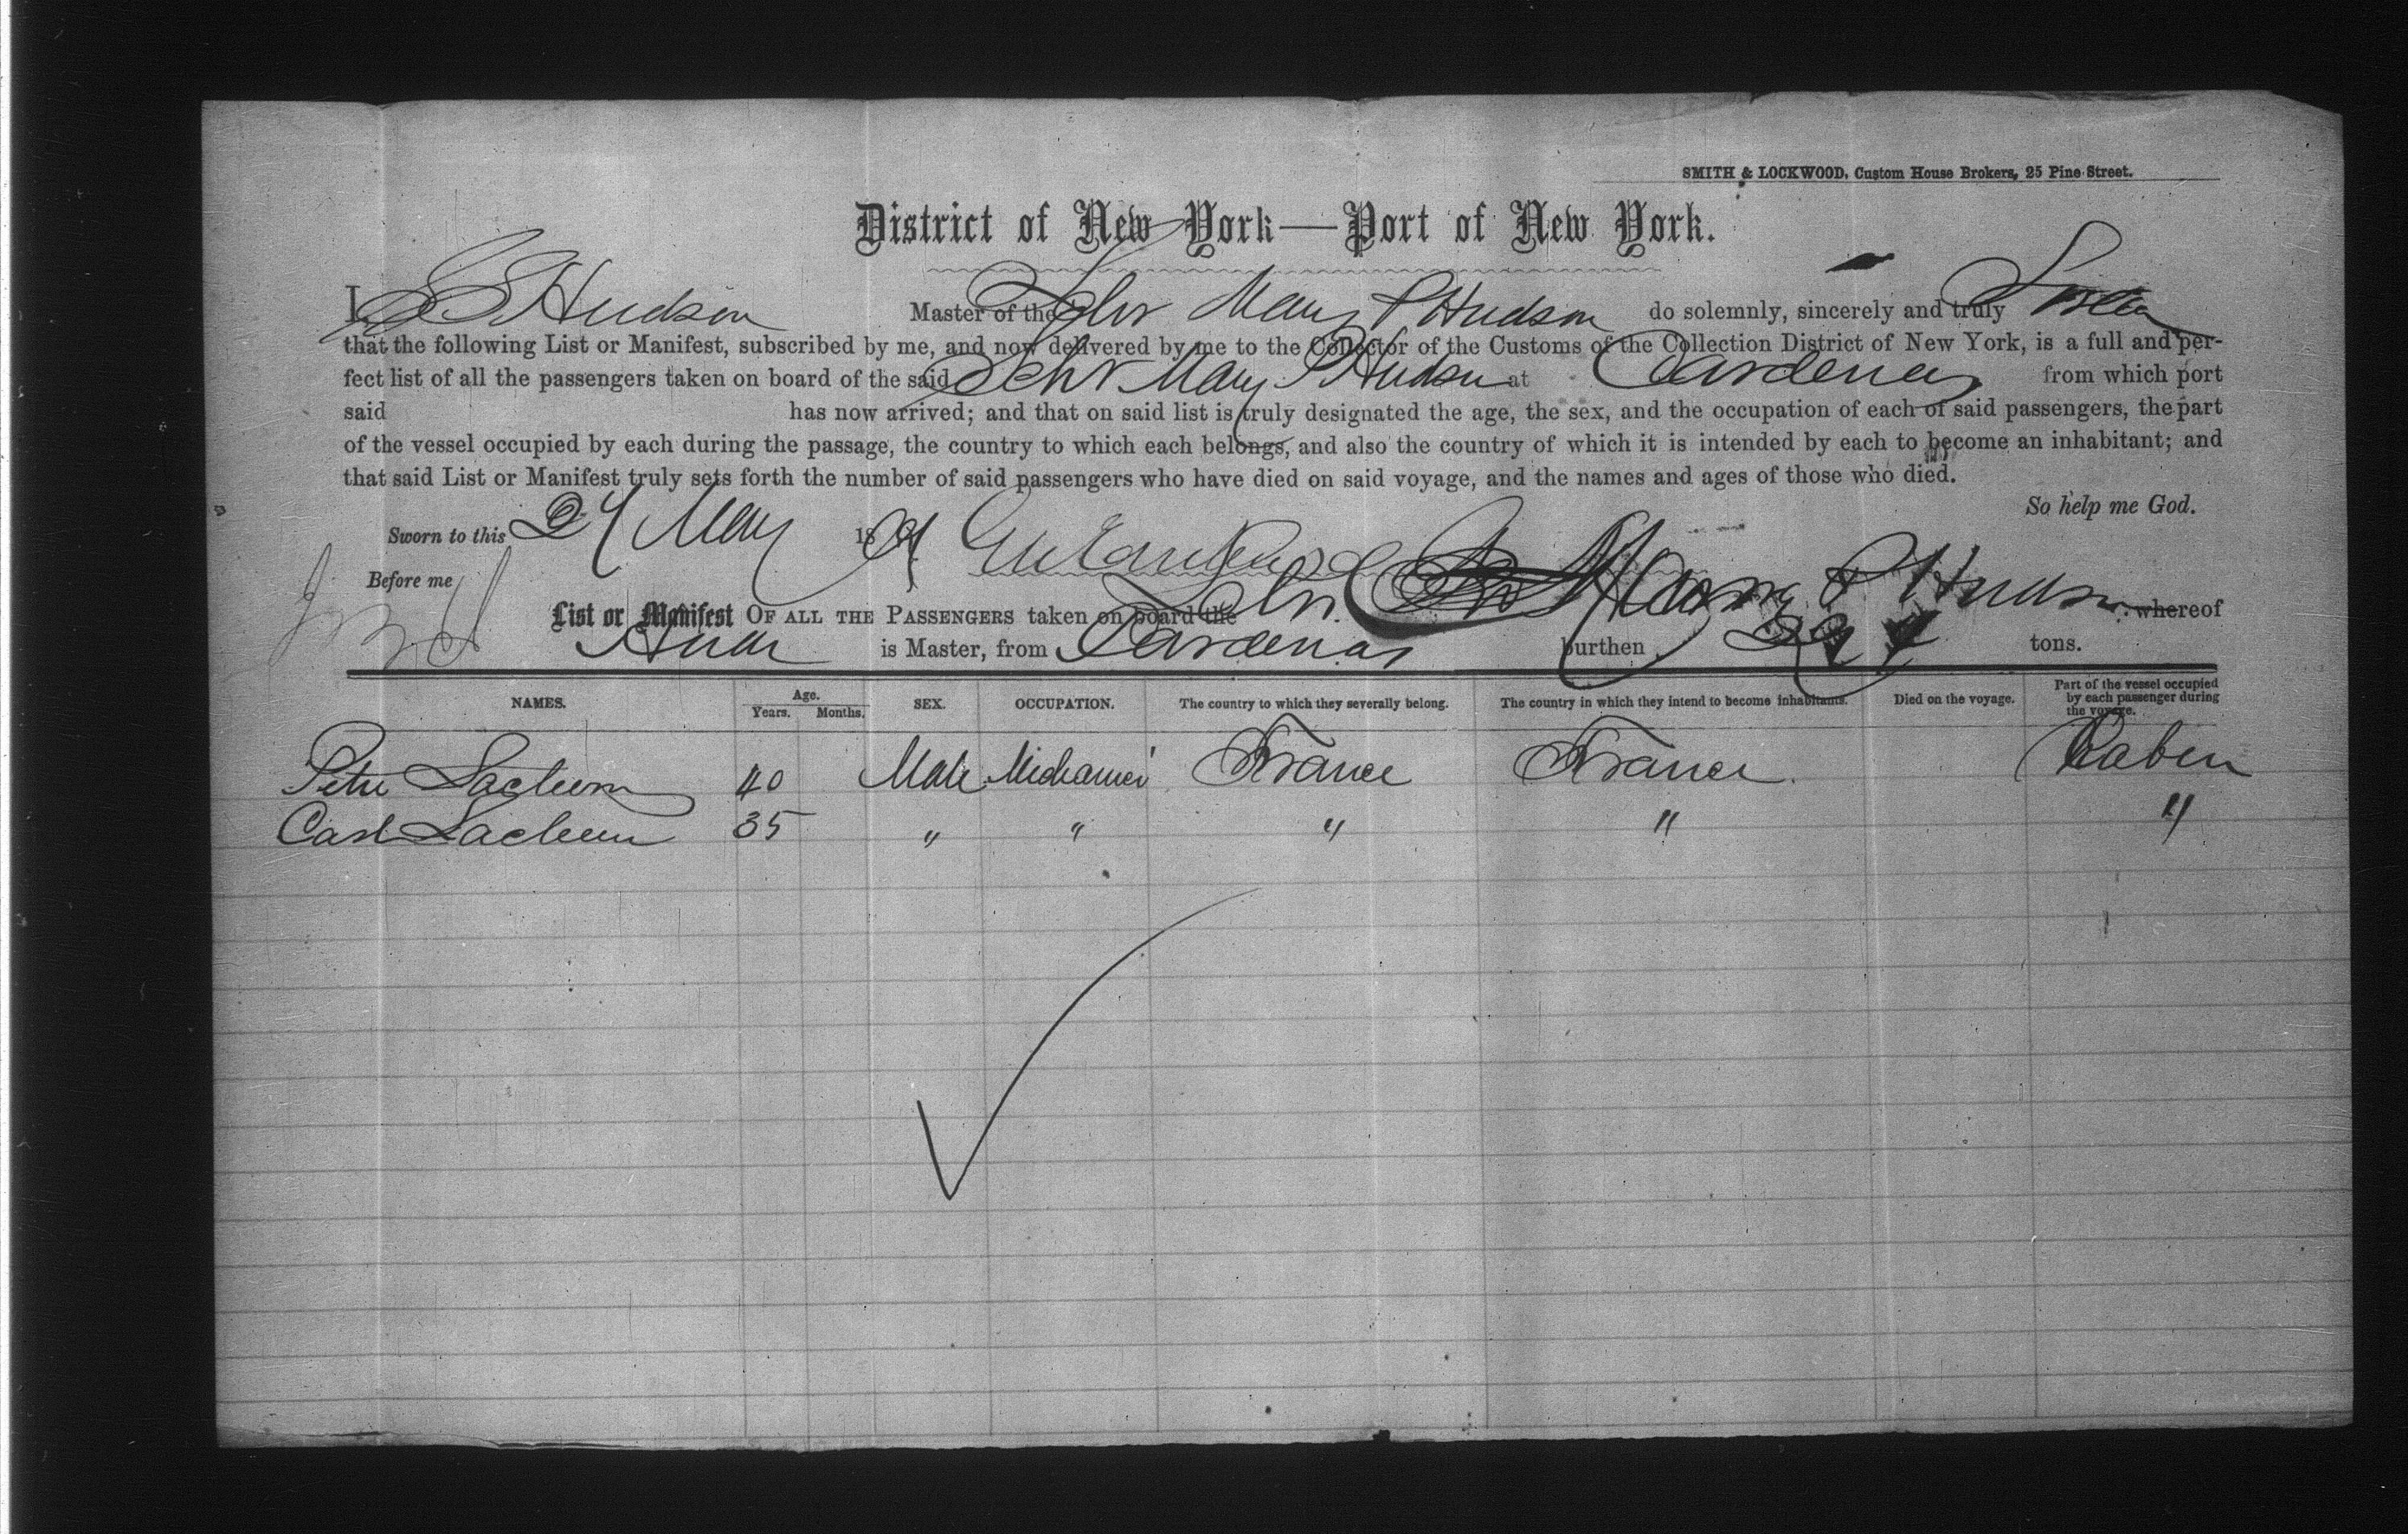 SMITH & LOCKWOOD, Custom House Brokers, 25 Pine Street.
District of New York—Port of New York.
I, Hudson Master of the Schr Mary P Hudson do solemnly, sincerely and truly
that the following List or Manifest, subscribed by me, and now delivered by me to the Collector of the Customs of the Collection District of New York, is a full and per-
fect list of all the passengers taken on board of the said Schr Mary P Hudson at Cardenas from which port
said has now arrived; and that on said list is truly designated the age, the sex, and the occupation of each of said passengers, the part
of the vessel occupied by each during the passage, the country to which each belongs, and also the country of which it is intended by each to become an inhabitant; and
that said List or Manifest truly sets forth the number of said passengers who have died on said voyage, and the names and ages of those who died.
So help me God.
Sworn to this May 18
Before me
List or Manifest OF ALL THE PASSENGERS taken on board the Schr. Mary P Hudson whereof
is Master, from Cardenas burthen tons.
NAMES. Age. Years. Months. SEX. OCCUPATION. The country to which they severally belong. The country in which they intend to become inhabitants. Died on the voyage. Part of the vessel occupied by each passenger during the voyage.
40 Male France France Caben
35 " " " " "